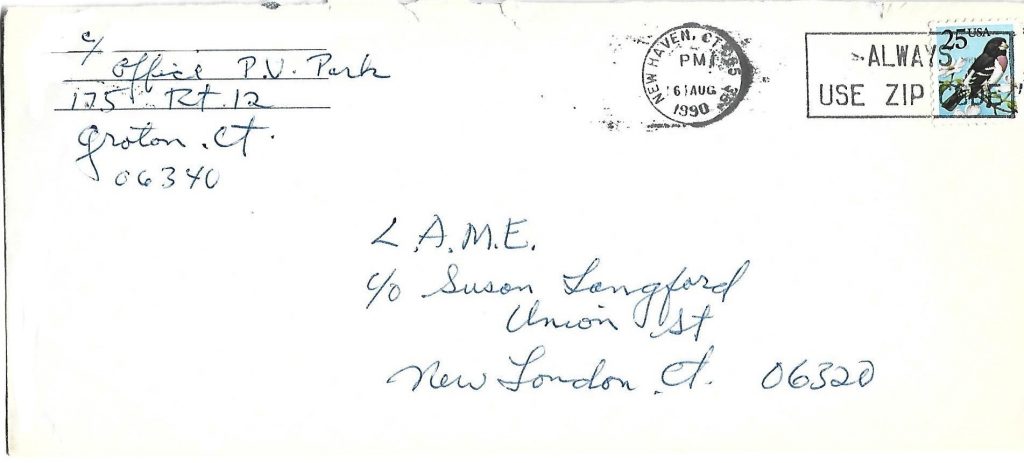 c/
Office P.V. Park
175 Rt. 12
Groton, Ct.
06340
NEW HAVEN, CT 065
PM
6 AUG
1990
ALWAYS
USE ZIP CODE
25 USA
L.A.M.E.
c/o Susan Langford
Union St
New London, Ct. 06320